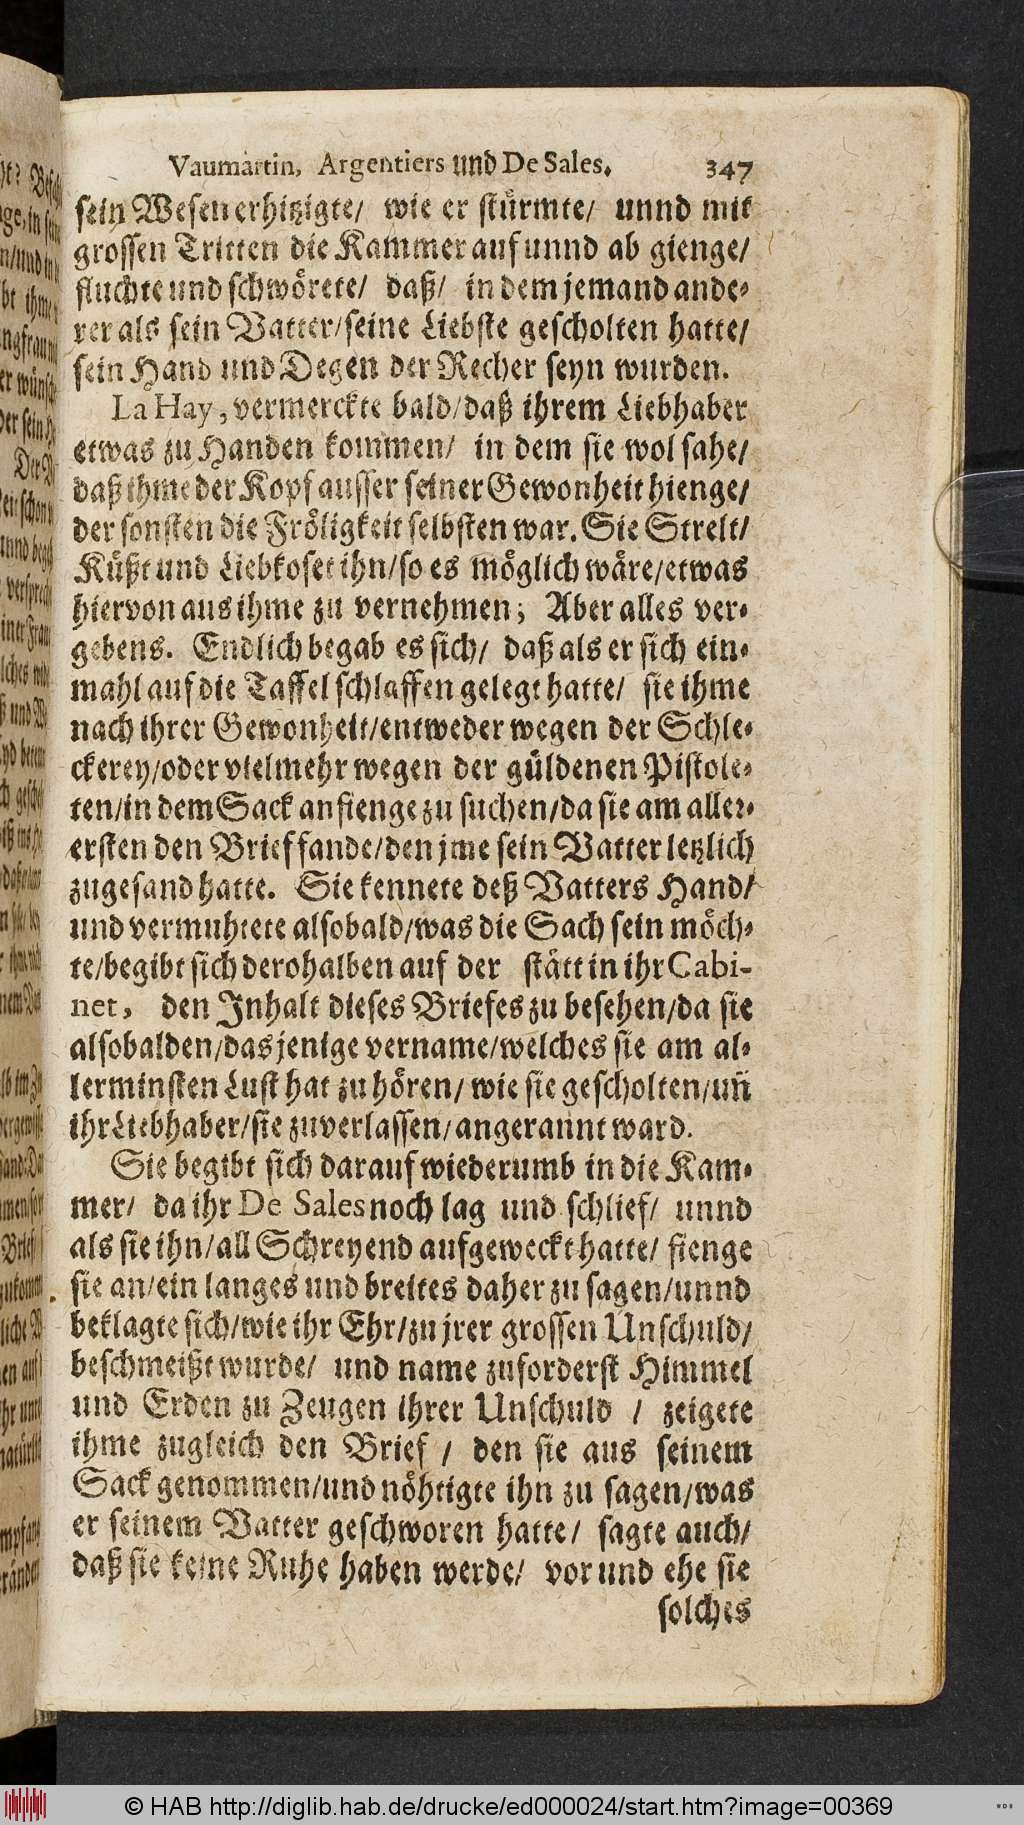 Vaumartin, Argentiers und De Sales. 347
sein Wesen erhitzigte/ wie er stürmte/ unnd mit
grossen Tritten die Kammer auf unnd ab gienge/
fluchte und schwörete/ daß/ in dem jemand ande-
rer als sein Vatter/seine Liebste gescholten hatte/
sein Hand und Degen der Recher seyn wurden.
La Hay, vermerckte bald/daß ihrem Liebhaber
etwas zu Handen kommen/ in dem sie wol sahe/
daß ihme der Kopf ausser seiner Gewonheit hienge/
der sonsten die Fröligkeit selbsten war. Sie Strelt/
Küßt und Liebkoset ihn/so es möglich wäre/etwas
hiervon aus ihme zu vernehmen; Aber alles ver-
gebens. Endlich begab es sich/ daß als er sich ein-
mahl auf die Taffel schlaffen gelegt hatte/ sie ihme
nach ihrer Gewonheit/entweder wegen der Schle-
ckerey/oder vielmehr wegen der güldenen Pistole-
ten/in dem Sack anfienge zu suchen/da sie am aller-
ersten den Brief fande/den jme sein Vatter letzlich
zugesand hatte. Sie kennete deß Vatters Hand/
und vermuhtete alsobald/was die Sach sein möch-
te/begibt sich derohalben auf der stätt in ihr Cabi-
net, den Inhalt dieses Briefes zu besehen/da sie
alsobalden/dasjenige vername/welches sie am al-
lerminsten Lust hat zu hören/ wie sie gescholten/uñ
ihr Liebhaber/sie zuverlassen/angerannt ward.
Sie begibt sich darauf wiederumb in die Kam-
mer/ da ihr De Sales noch lag und schlief/ unnd
als sie ihn/all Schreyend aufgeweckt hatte/ fienge
sie an/ein langes und breites daher zu sagen/unnd
beklagte sich/wie ihr Ehr/zu jrer grossen Unschuld/
beschmeißt wurde/ und name zuforderst Himmel
und Erden zu Zeugen ihrer Unschuld / zeigete
ihme zugleich den Brief / den sie aus seinem
Sack genommen/und nöhtigte ihn zu sagen/was
er seinem Vatter geschworen hatte/ sagte auch/
daß sie keine Ruhe haben werde/ vor und ehe sie
solches
© HAB http://diglib.hab.de/drucke/ed000024/start.htm?image=00369